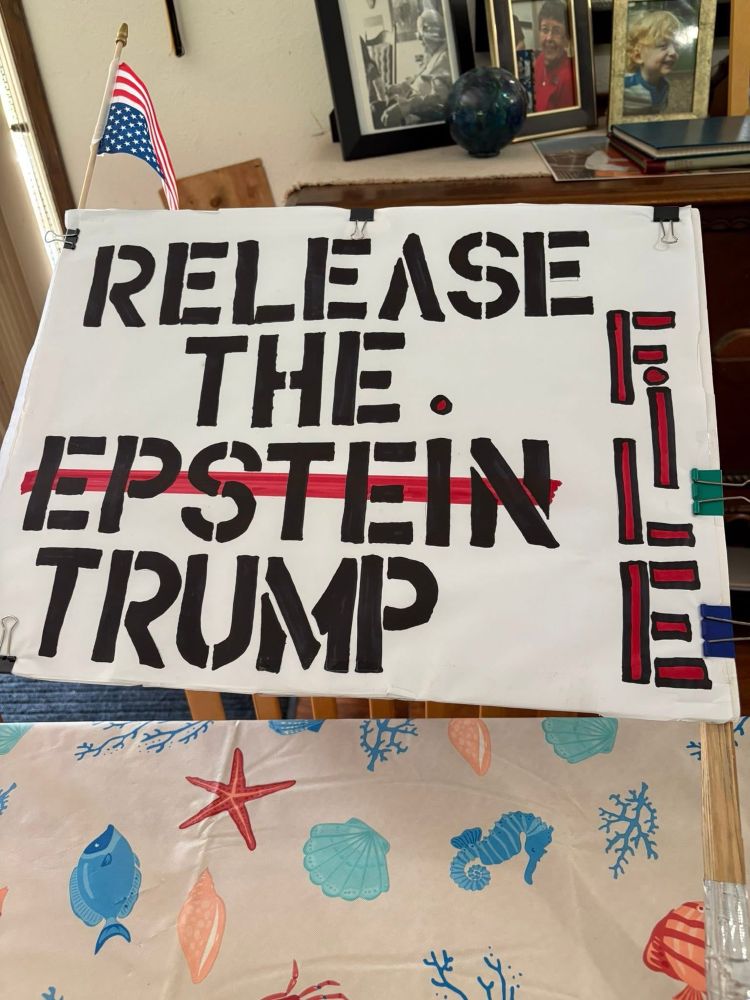 RELEASE
THE
EPSTEIN
TRUMP
FILE